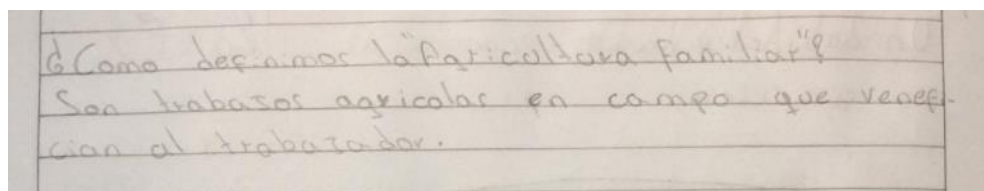 ¿Como definimos la "Agricultura familiar"?
Son trabajos agricolas en campo que venef-
cian al trabajador.